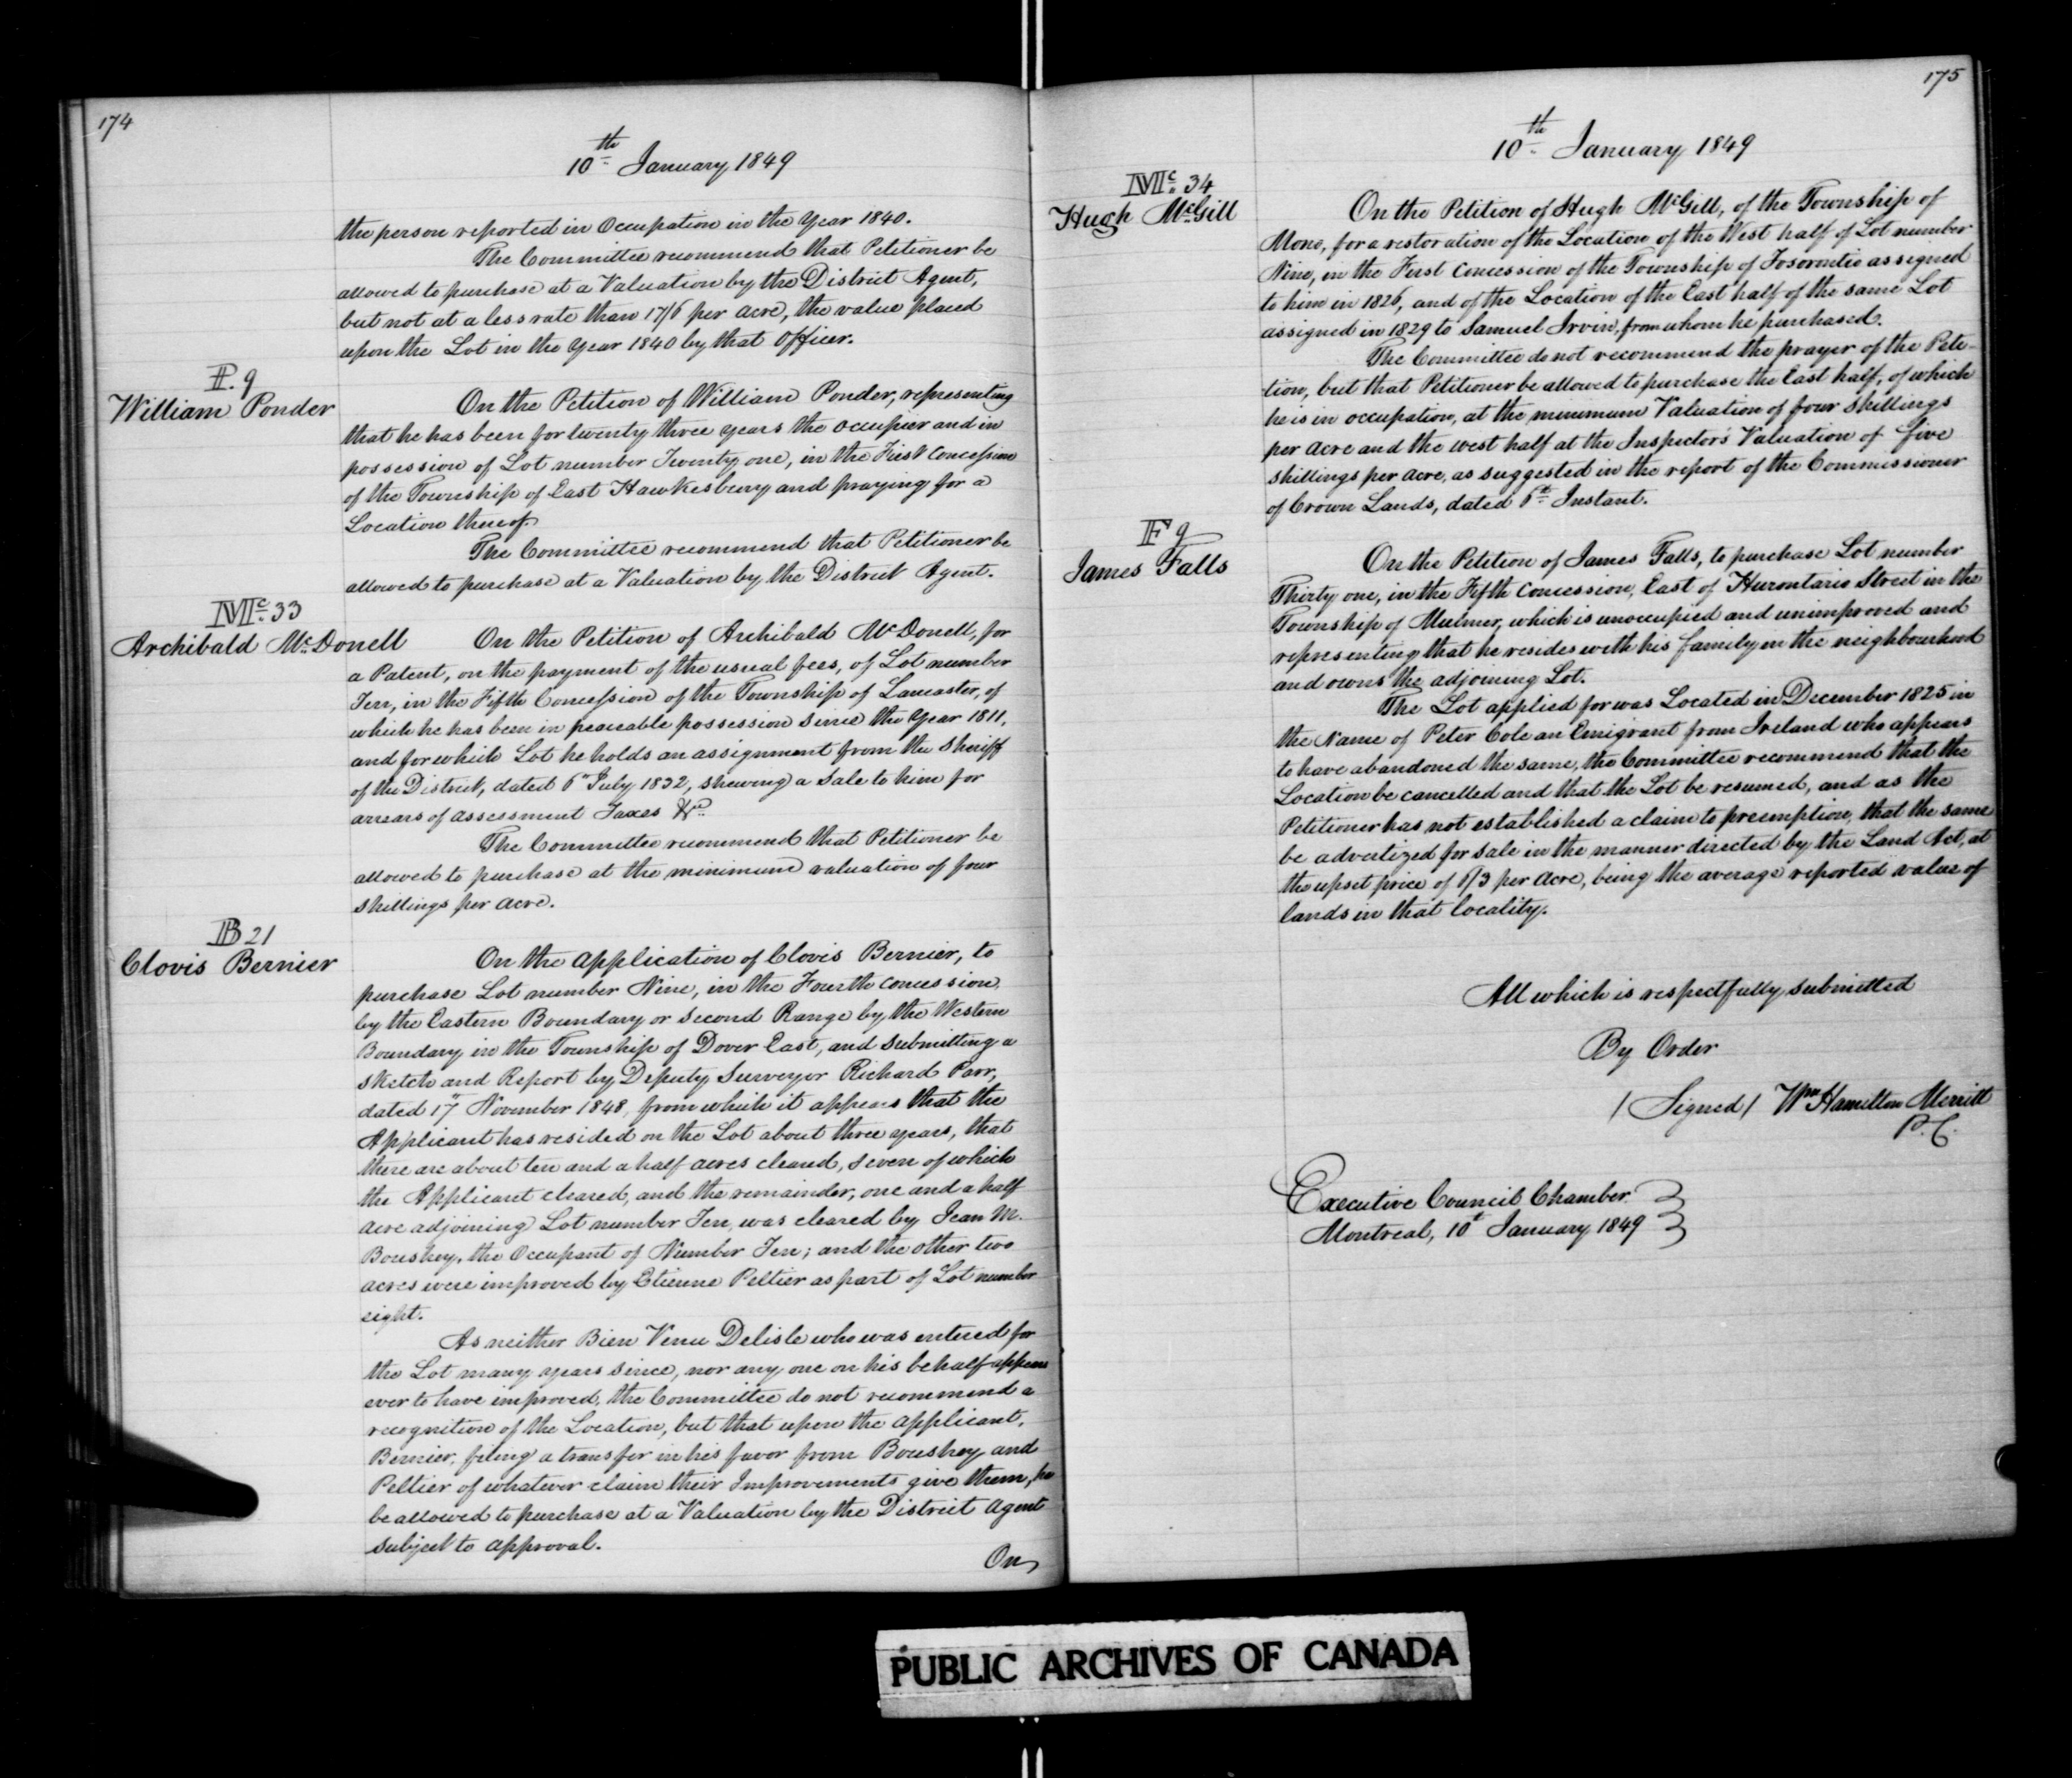 174
10th January 1849
the person reported in Occupation in the Year 1840.
The Committee recommend that Petitioner be
allowed to purchase at a Valuation by the District Agent,
but not at a less rate than 17/6 per acre, the value placed
upon the Lot in the Year 1840 by that Officer.
P. 9
William Ponder
On the Petition of William Ponder, representing
that he has been for twenty three years the occupier and in
possession of Lot number Twenty one, in the First Concession
of the Township of East Hawkesbury and praying for a
Location thereof.
The Committee recommend that Petitioner be
allowed to purchase at a Valuation by the District Agent.
Mc. 33
Archibald McDonell
On the Petition of Archibald McDonell, for
a Patent, on the payment of the usual fees, of Lot number
Ten, in the Fifth Concession of the Township of Lancaster, of
which he has been in peaceable possession since the Year 1811,
and for which Lot he holds an assignment from the Sheriff
of the District, dated 6th July 1832, shewing a Sale to him for
arrears of assessment Taxes &c.
The Committee recommend that Petitioner be
allowed to purchase at the minimum valuation of four
shillings per acre.
B 21
Clovis Bernier
On the application of Clovis Bernier, to
purchase Lot number Nine, in the Fourth concession
by the Eastern Boundary or Second Range by the Western
Boundary in the Township of Dover East, and submitting a
sketch and Report by Deputy Surveyor Richard Parr,
dated 17th November 1848, from which it appears that the
Applicant has resided on the Lot about three years, that
there are about ten and a half acres cleared, seven of which
the Applicant cleared, and the remainder, one and a half
acre adjoining Lot number Ten, was cleared by Jean M.
Boushey, the Occupant of Number Ten; and the other two
acres were improved by Etienne Peltier as part of Lot number
eight.
As neither Bien Venu Delisle who was entered for
the Lot many years since, nor any one on his behalf appears
ever to have improved, the Committee do not recommend a
recognition of the Location, but that upon the applicant,
Bernier, filing a transfer in his favor from Boushey and
Peltier of whatever claim their Improvements give them, he
be allowed to purchase at a Valuation by the District Agent
subject to approval.
On
175
10th January 1849
Mc. 34
Hugh McGill
On the Petition of Hugh McGill, of the Township of
Mono, for a restoration of the Location of the West half of Lot number
Nine, in the First Concession of the Township of Tosorontio assigned
to him in 1826, and of the Location of the East half of the same Lot
assigned in 1829 to Samuel Irvin, from whom he purchased.
The Committee do not recommend the prayer of the Peti-
tion, but that Petitioner be allowed to purchase the East half, of which
he is in occupation, at the minimum Valuation of four shillings
per acre and the west half at the Inspector's Valuation of five
shillings per acre, as suggested in the report of the Commissioner
of Crown Lands, dated 6th Instant.
F 9
James Falls
On the Petition of James Falls, to purchase Lot number
Thirty one, in the Fifth Concession, East of Hurontario Street in the
Township of Mulmer, which is unoccupied and unimproved and
representing that he resides with his family in the neighbourhood
and owns the adjoining Lot.
The Lot applied for was Located in December 1825 in
the Name of Peter Cole an Emigrant from Ireland who appears
to have abandoned the same, the Committee recommend that the
Location be cancelled and that the Lot be resumed, and as the
Petitioner has not established a claim to preemption, that the same
be advertized for sale in the manner directed by the Land Act, at
the upset price of 6/3 per acre, being the average reported value of
lands in that locality.
All which is respectfully submitted
By Order
/Signed/ Wm Hamilton Merritt
P. C.
Executive Council Chamber
Montreal, 10th January 1849
PUBLIC ARCHIVES OF CANADA